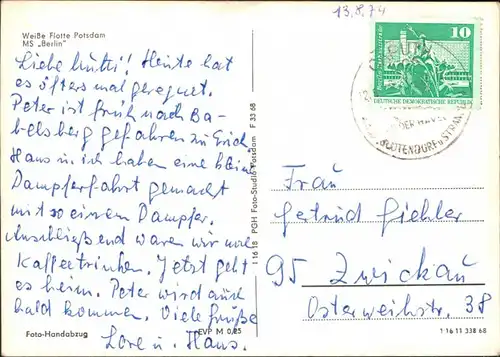 13.8.74
Weiße Flotte Potsdam
MS „Berlin"
Liebe Mutti! Heute hat
es öfters mal geregnet.
Peter ist früh nach Ba-
belsberg gefahren zu Erich.
Hans u. ich haben eine kleine
Dampferfahrt gemacht
mit so einem Dampfer.
Anschließend waren wir noch
Kaffeetrinken. Jetzt geht
es heim. Peter wird auch
bald kommen. Viele Grüße
Lore u. Hans.
Foto-Handabzug
EVP M 0,25
1 16 18 PGH Foto-Studio Potsdam F 33 68
10
DEUTSCHE DEMOKRATISCHE REPUBLIK
DER HAVEL
BLÜTENDORF u. STRAND
Frau
Gertrud Giehler
95 Zwickau
Osterweihstr. 38
1 16 11 338 68